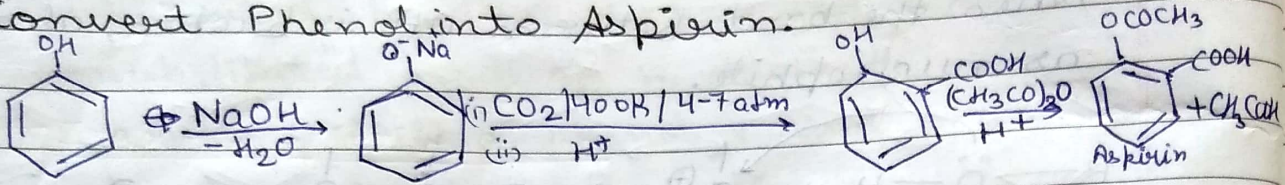 onvert Phenol into Aspirin.
OH
NaOH
-H2O
O- Na
(i) CO2/400K/4-7 atm
(ii) H+
OH
COOH
(CH3CO)2O
H+
OCOCH3
COOH
Aspirin